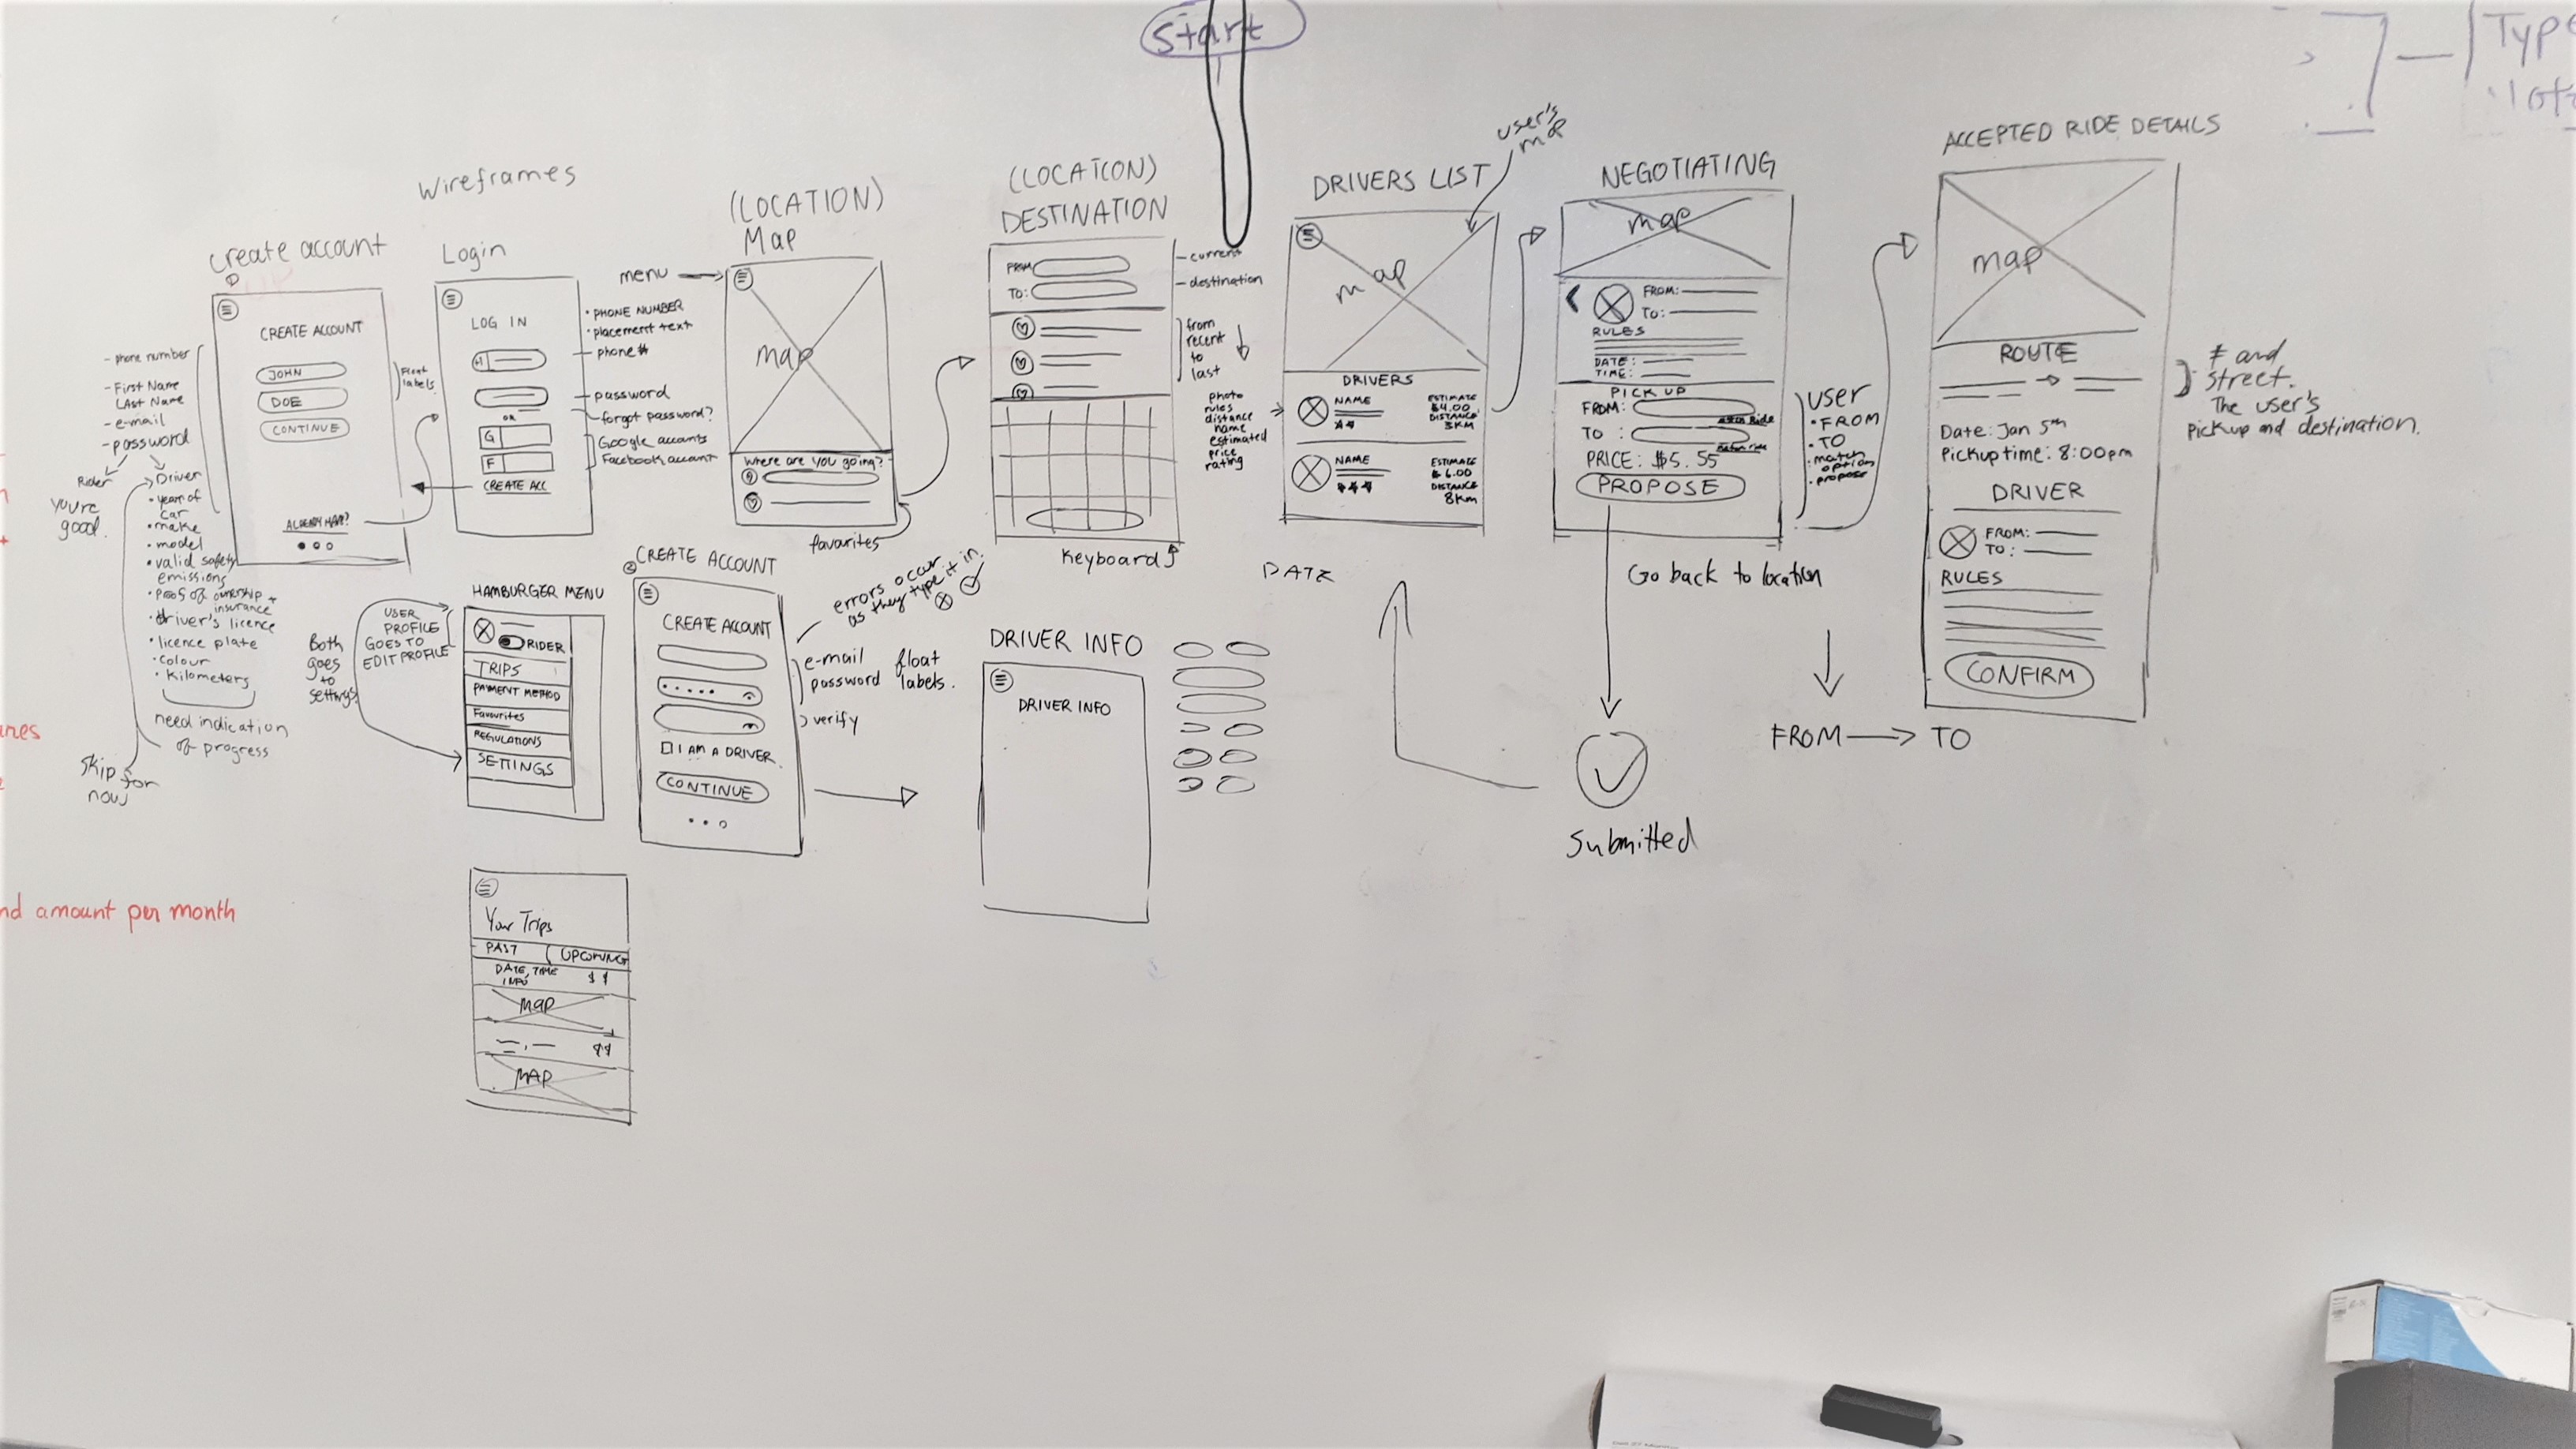 Start
Type
Wireframes
create account
CREATE ACCOUNT
JOHN
DOE
CONTINUE
ALREADY HAVE?
- phone number
- First Name
Last Name
- e-mail
- password
Float
labels
Rider
you're
good.
Driver
• year of
car
• make
• model
• valid safety
emissions
• proof of ownership +
insurance
• driver's licence
• licence plate
• colour
• kilometers
need indication
of progress
Skip for
now
Login
LOG IN
+1
OR
G
F
CREATE ACC
• PHONE NUMBER
• placement text
- phone #
- password
- forgot password?
Google accounts
Facebook account
(LOCATION)
Map
menu
map
Where are you going?
favourites
(LOCATION)
DESTINATION
FROM
TO:
- current
- destination
from
recent
to
last
Keyboard
DRIVERS LIST
user's
map
DRIVERS
NAME
ESTIMATE
$4.00
DISTANCE
3KM
NAME
ESTIMATE
$6.00
DISTANCE
8Km
photo
rules
distance
name
estimated
price
rating
DATE
NEGOTIATING
map
FROM:
TO:
RULES
DATE:
TIME:
PICK UP
FROM:
TO :
PRICE: $5.55
PROPOSE
USER
• FROM
• TO
• match
option
• propose
Go back to location
FROM → TO
Submitted
ACCEPTED RIDE DETAILS
map
ROUTE
Date: Jan 5th
Pickup time: 8:00pm
DRIVER
FROM:
TO:
RULES
CONFIRM
# and
street.
The user's
pickup and destination.
HAMBURGER MENU
RIDER
TRIPS
PAYMENT METHOD
Favourites
REGULATIONS
SETTINGS
USER
PROFILE
GOES TO
EDIT PROFILE
Both
goes
to
settings
② CREATE ACCOUNT
CREATE ACCOUNT
I AM A DRIVER.
CONTINUE
errors occur
as they type it in.
e-mail
password
float
labels.
verify
DRIVER INFO
DRIVER INFO
Your Trips
PAST
UPCOMING
DATE, TIME
INFO
$ $
MAP
$$
MAP
amount per month